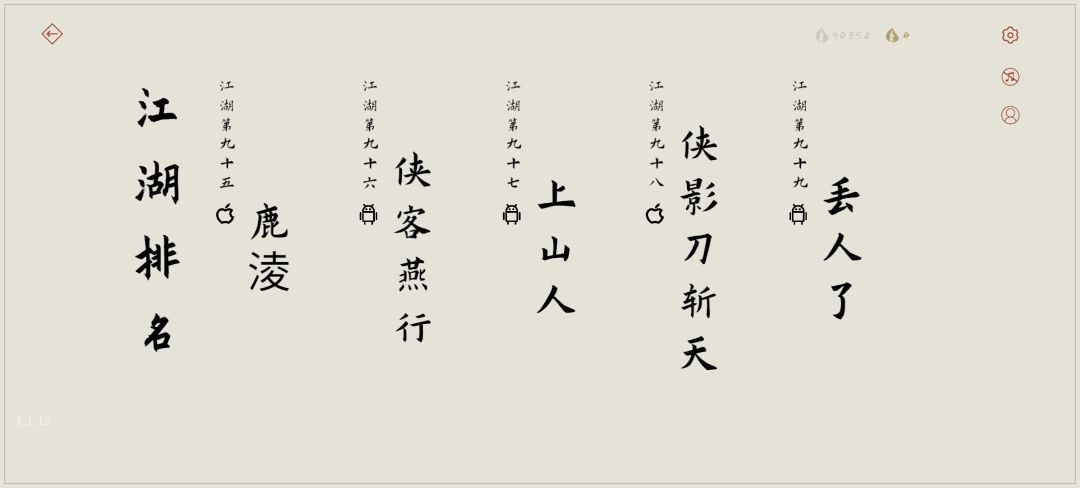 40352
4
江湖排名
江湖第九十五
鹿淩
江湖第九十六
侠客燕行
江湖第九十七
上山人
江湖第九十八
侠影刀斩天
江湖第九十九
丢人了
1.1.12